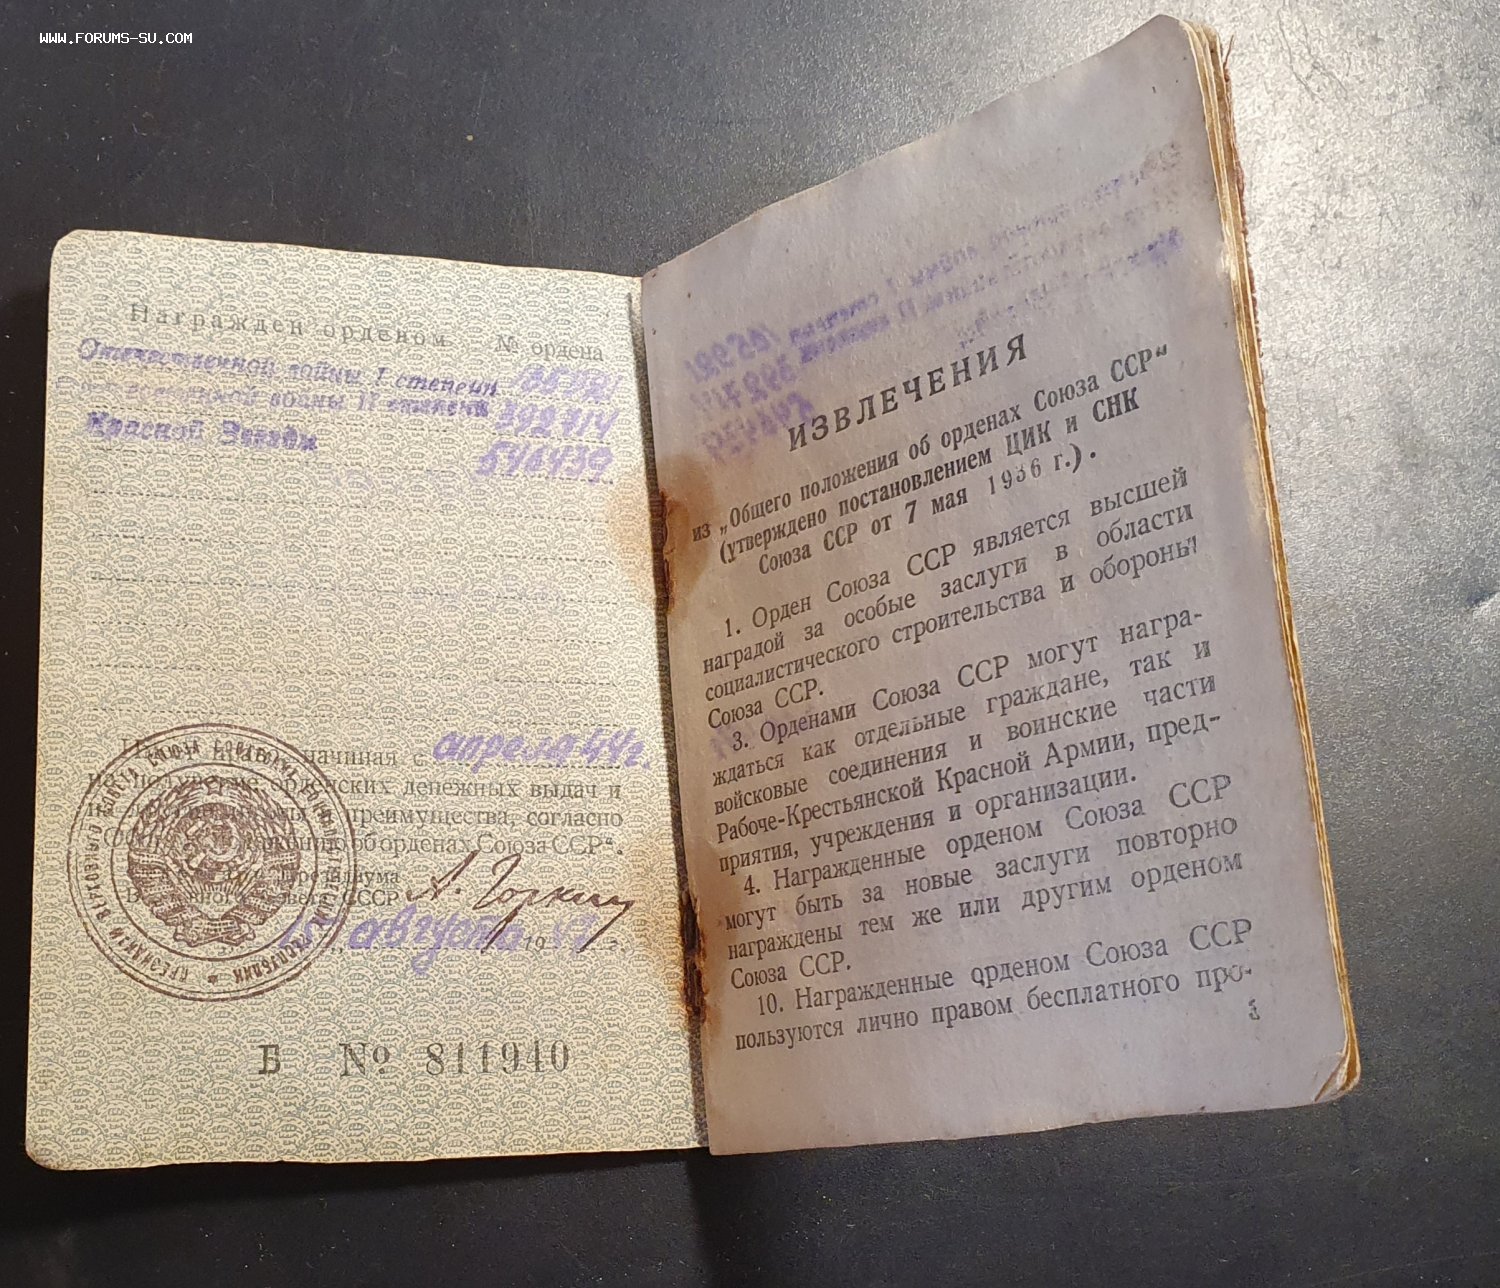 WWW.FORUMS-SU.COM
Награжден орденом № ордена
Отечественной войны I степени
войны II степени 392714
Красной Звезды 546439
начиная с апреля 44г.
денежных выдач и
преимущества, согласно
об орденах Союза ССР".
Президиума
СССР А. Горкин
августа 1947 г.
Б № 811940
ИЗВЛЕЧЕНИЯ
из „Общего положения об орденах Союза ССР"
(утверждено постановлением ЦИК и СНК
Союза ССР от 7 мая 1936 г.).
1. Орден Союза ССР является высшей
наградой за особые заслуги в области
социалистического строительства и обороны
Союза ССР.
3. Орденами Союза ССР могут награ-
ждаться как отдельные граждане, так и
войсковые соединения и воинские части
Рабоче-Крестьянской Красной Армии, пред-
приятия, учреждения и организации.
4. Награжденные орденом Союза ССР
могут быть за новые заслуги повторно
награждены тем же или другим орденом
Союза ССР.
10. Награжденные орденом Союза ССР
пользуются лично правом бесплатного про-